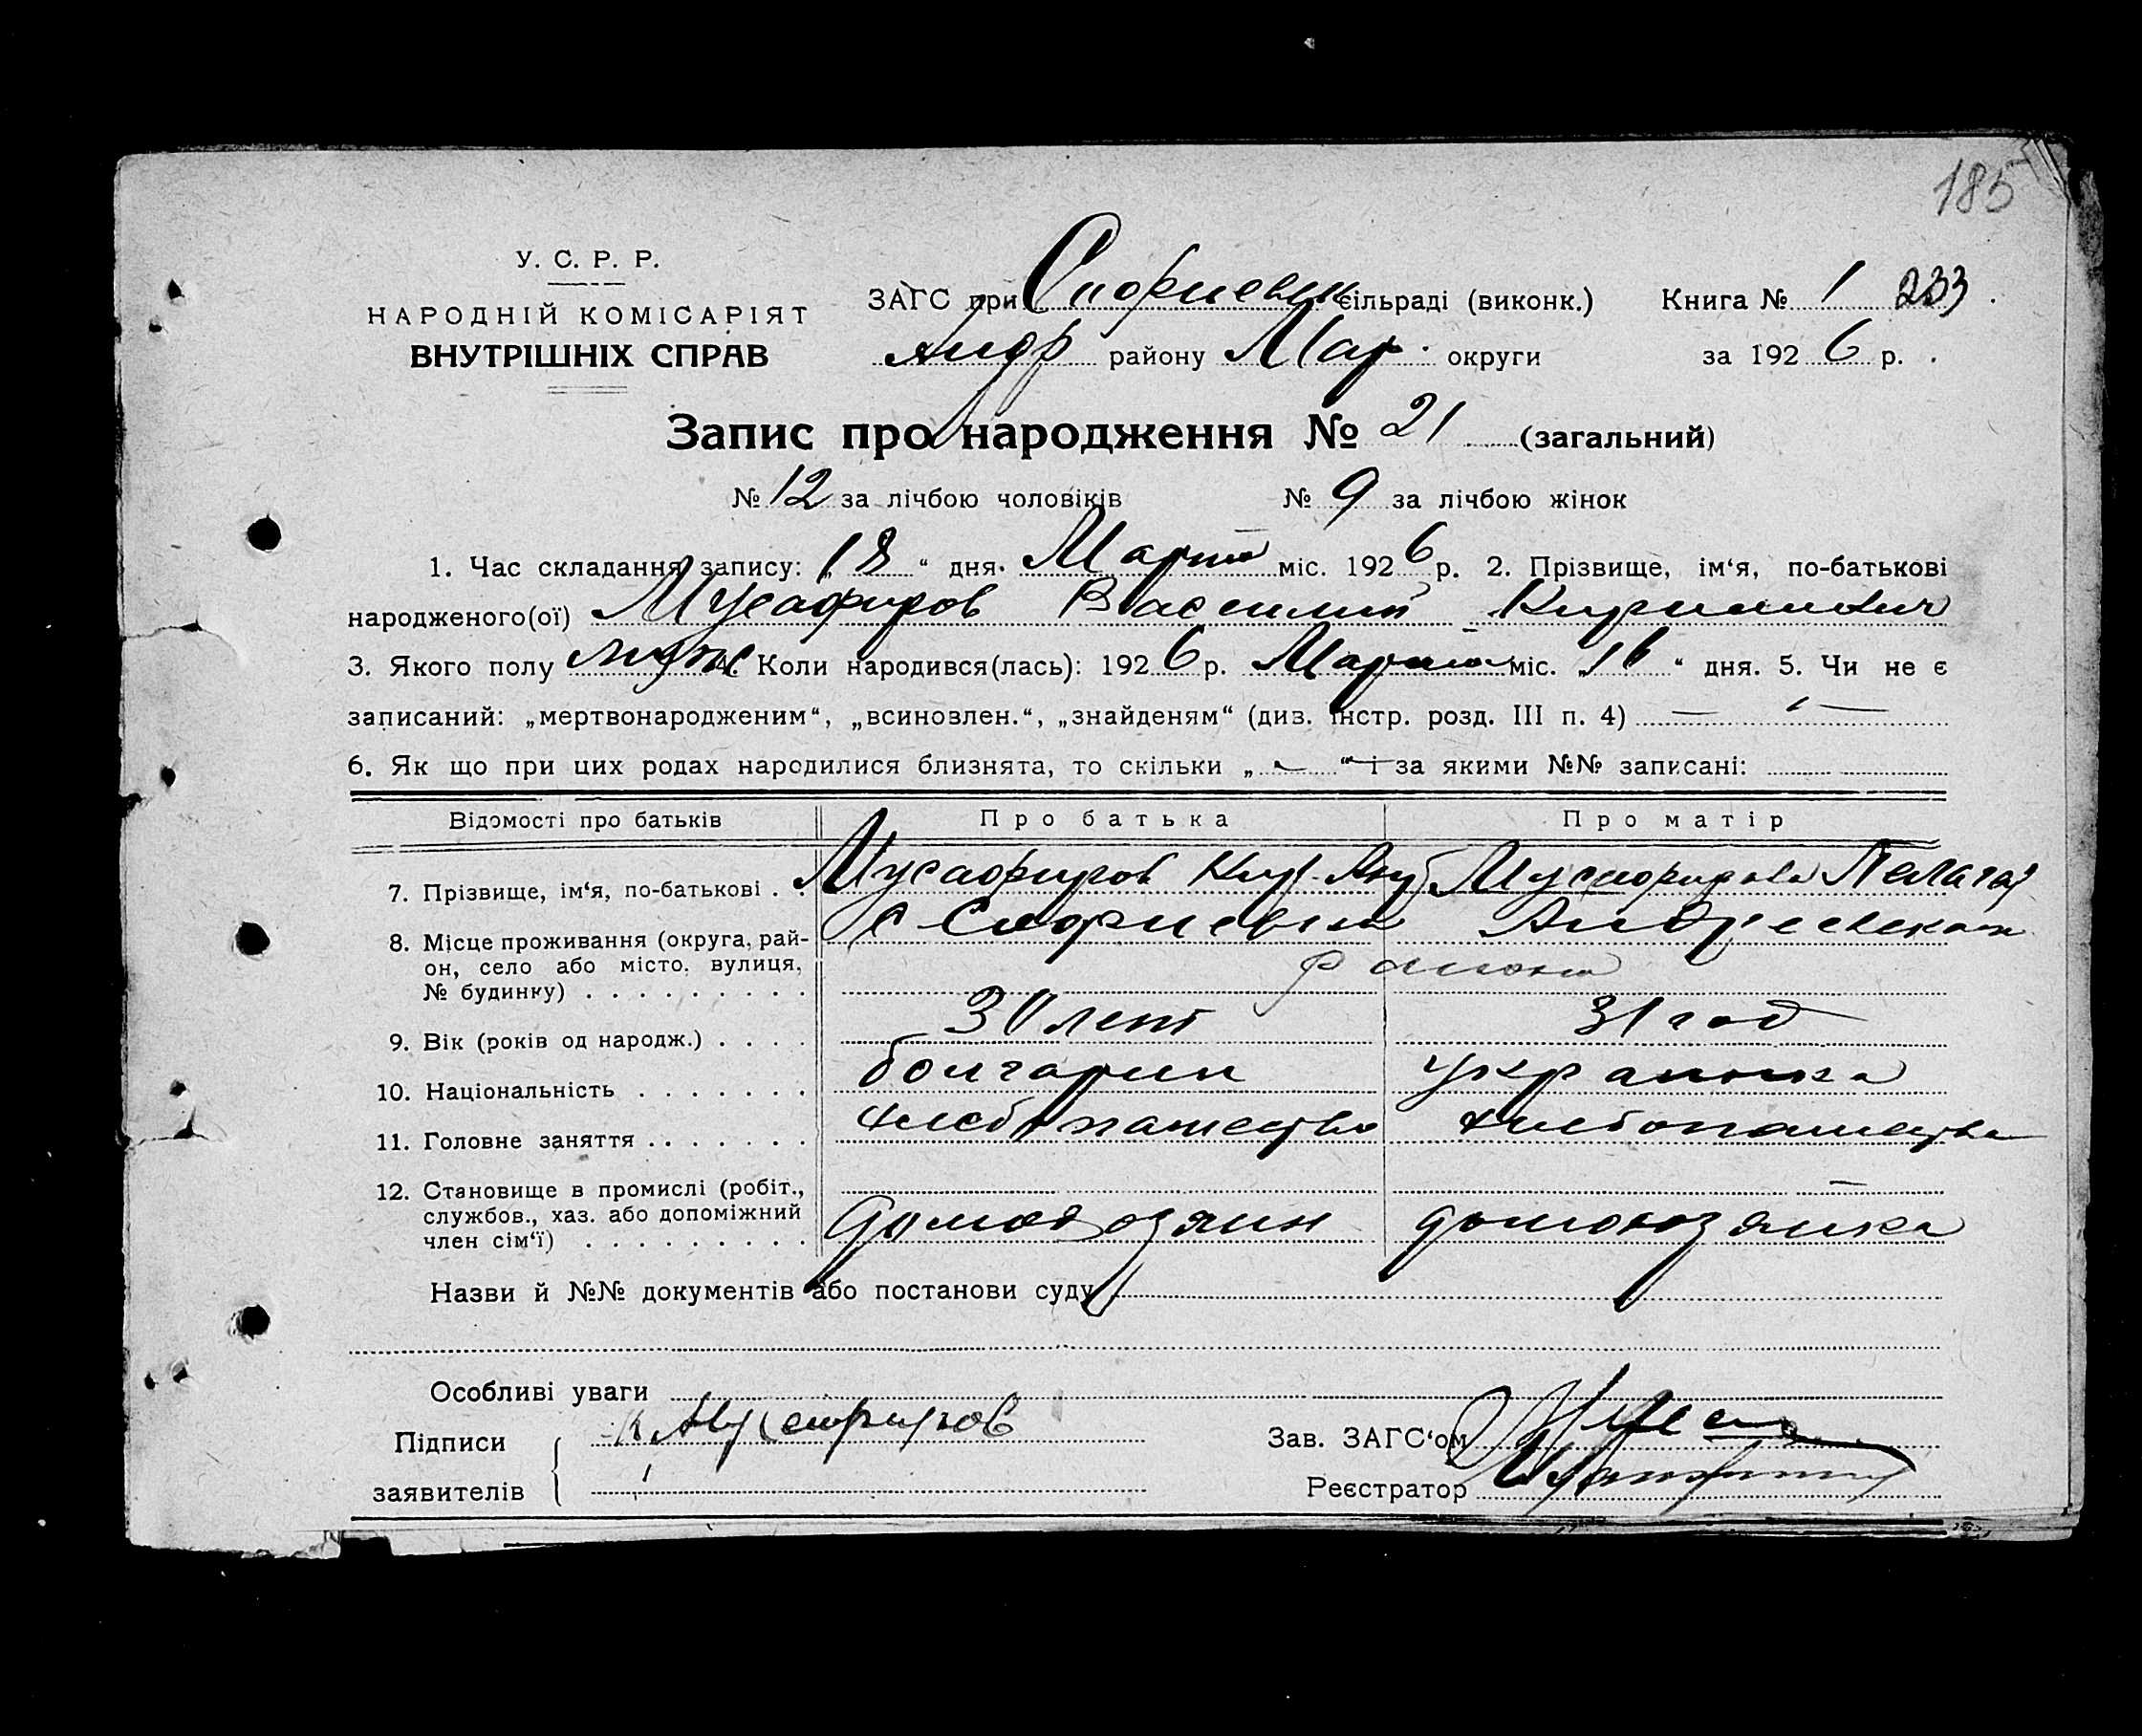 185
У. С. Р. Р.
НАРОДНІЙ КОМІСАРІЯТ
ВНУТРІШНІХ СПРАВ
ЗАГС при сільраді (виконк.) Книга № 1 233
Андр району Мар. округи за 1926 р.
Запис про народження № 21 (загальний)
№ 12 за лічбою чоловіків № 9 за лічбою жінок
1. Час складання запису: „18“ дня Марта міс. 1926 р. 2. Прізвище, ім‘я, по-батькові
народженого(ої) Мусафиров Василий Кириллович
3. Якого полу муж 4. Коли народився(лась): 1926 р. Марта міс. „16“ дня. 5. Чи не є
записаний: „мертвонародженим“, „всиновлен.“, „знайденям“ (див. інстр. розд. III п. 4) —
6. Як що при цих родах народилися близнята, то скільки „—“ і за якими №№ записані:
Відомості про батьків Про батька Про матір
7. Прізвище, ім‘я, по-батькові . . Мусафиров Кир. Мусафирова Пелагея
8. Місце проживання (округа, рай-
он, село або місто, вулиця,
№ будинку) . . . . . . . . . с Андреевского
района
9. Вік (років од народж.) . . . . лет 31 год
10. Національність . . . . . . . болгарин украинка
11. Головне заняття . . . . . . . хлебопашество хлебопашество
12. Становище в промислі (робіт.,
службов., хаз. або допоміжний
член сім‘ї) . . . . . . . . . домохозяин домохозяйка
Назви й №№ документів або постанови суду
Особливі уваги
Підписи
заявителів К Мусафиров
Зав. ЗАГС‘ом
Реєстратор